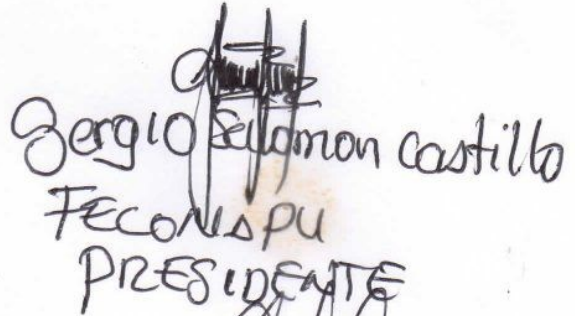 Sergio Salomon Castillo
FECONAPU
PRESIDENTE